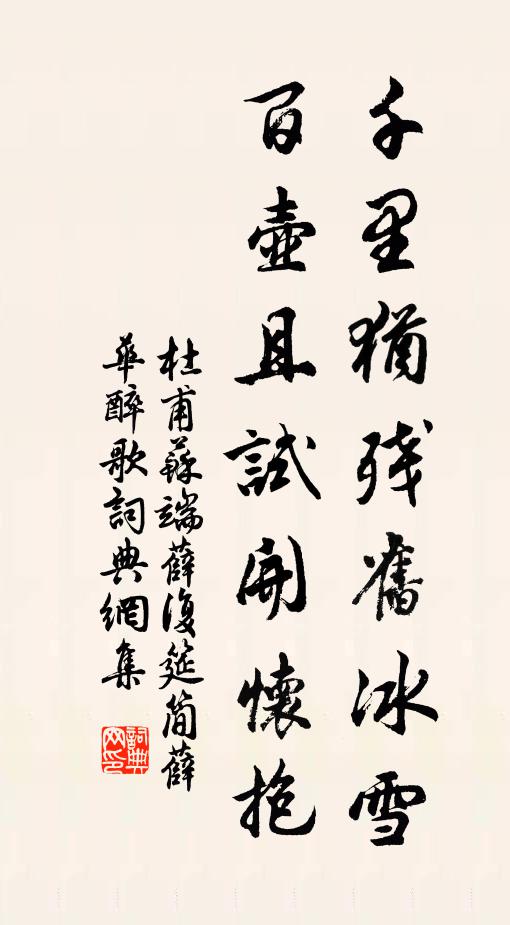 千里猶残舊冰雪
百壺且試開懷抱
杜甫蘇端薛復筵簡薛
華醉歌詞典網集
詞典网印